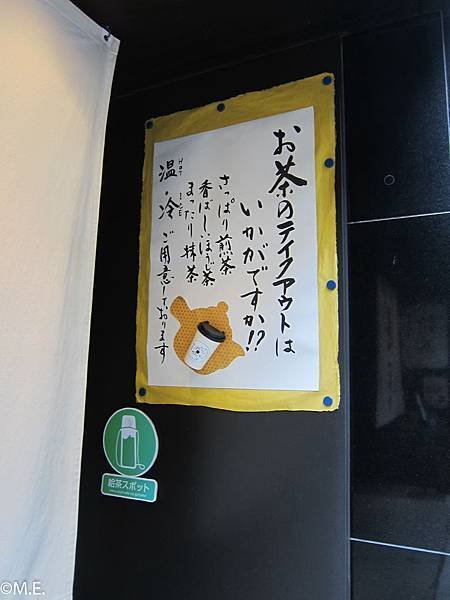 お茶のテイクアウトは
いかがですか!?
さっぱり煎茶
香ばしいほうじ茶
まったり抹茶
HOT ICE
温・冷 ご用意しております
給茶スポット
©M.E.